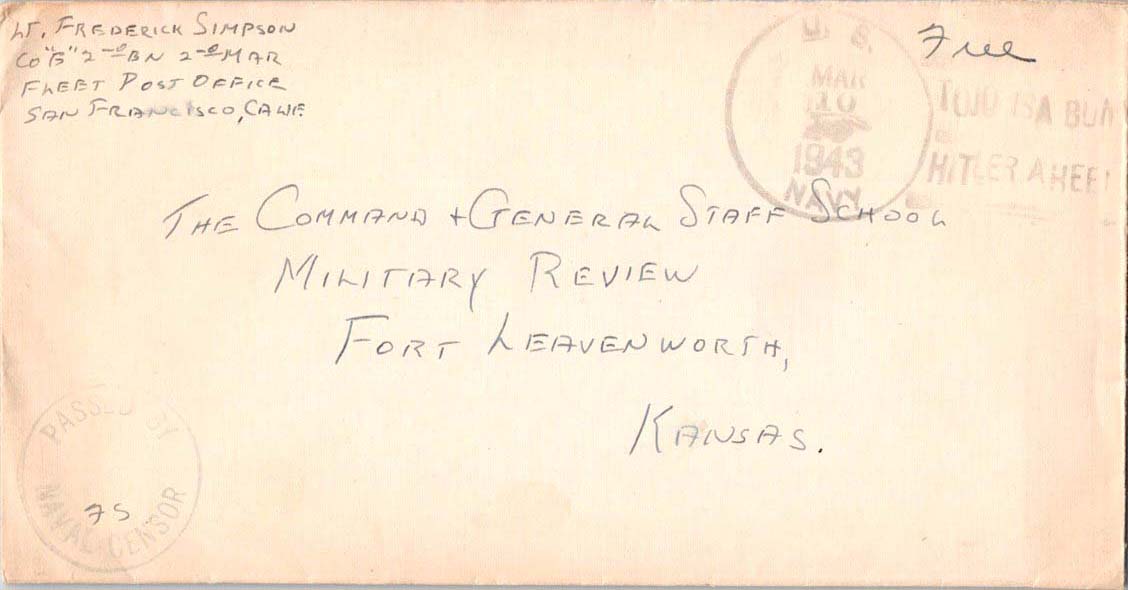 Lt. Frederick Simpson
Co "G" 2nd Bn 2nd Mar
Fleet Post Office
San Francisco, Calif
Free
U. S.
MAR
10
1943
NAVY
TOJO IS A BUM
HITLER A HEEL
The Command + General Staff School
Military Review
Fort Leavenworth,
Kansas.
PASSED BY
NAVAL CENSOR
FS